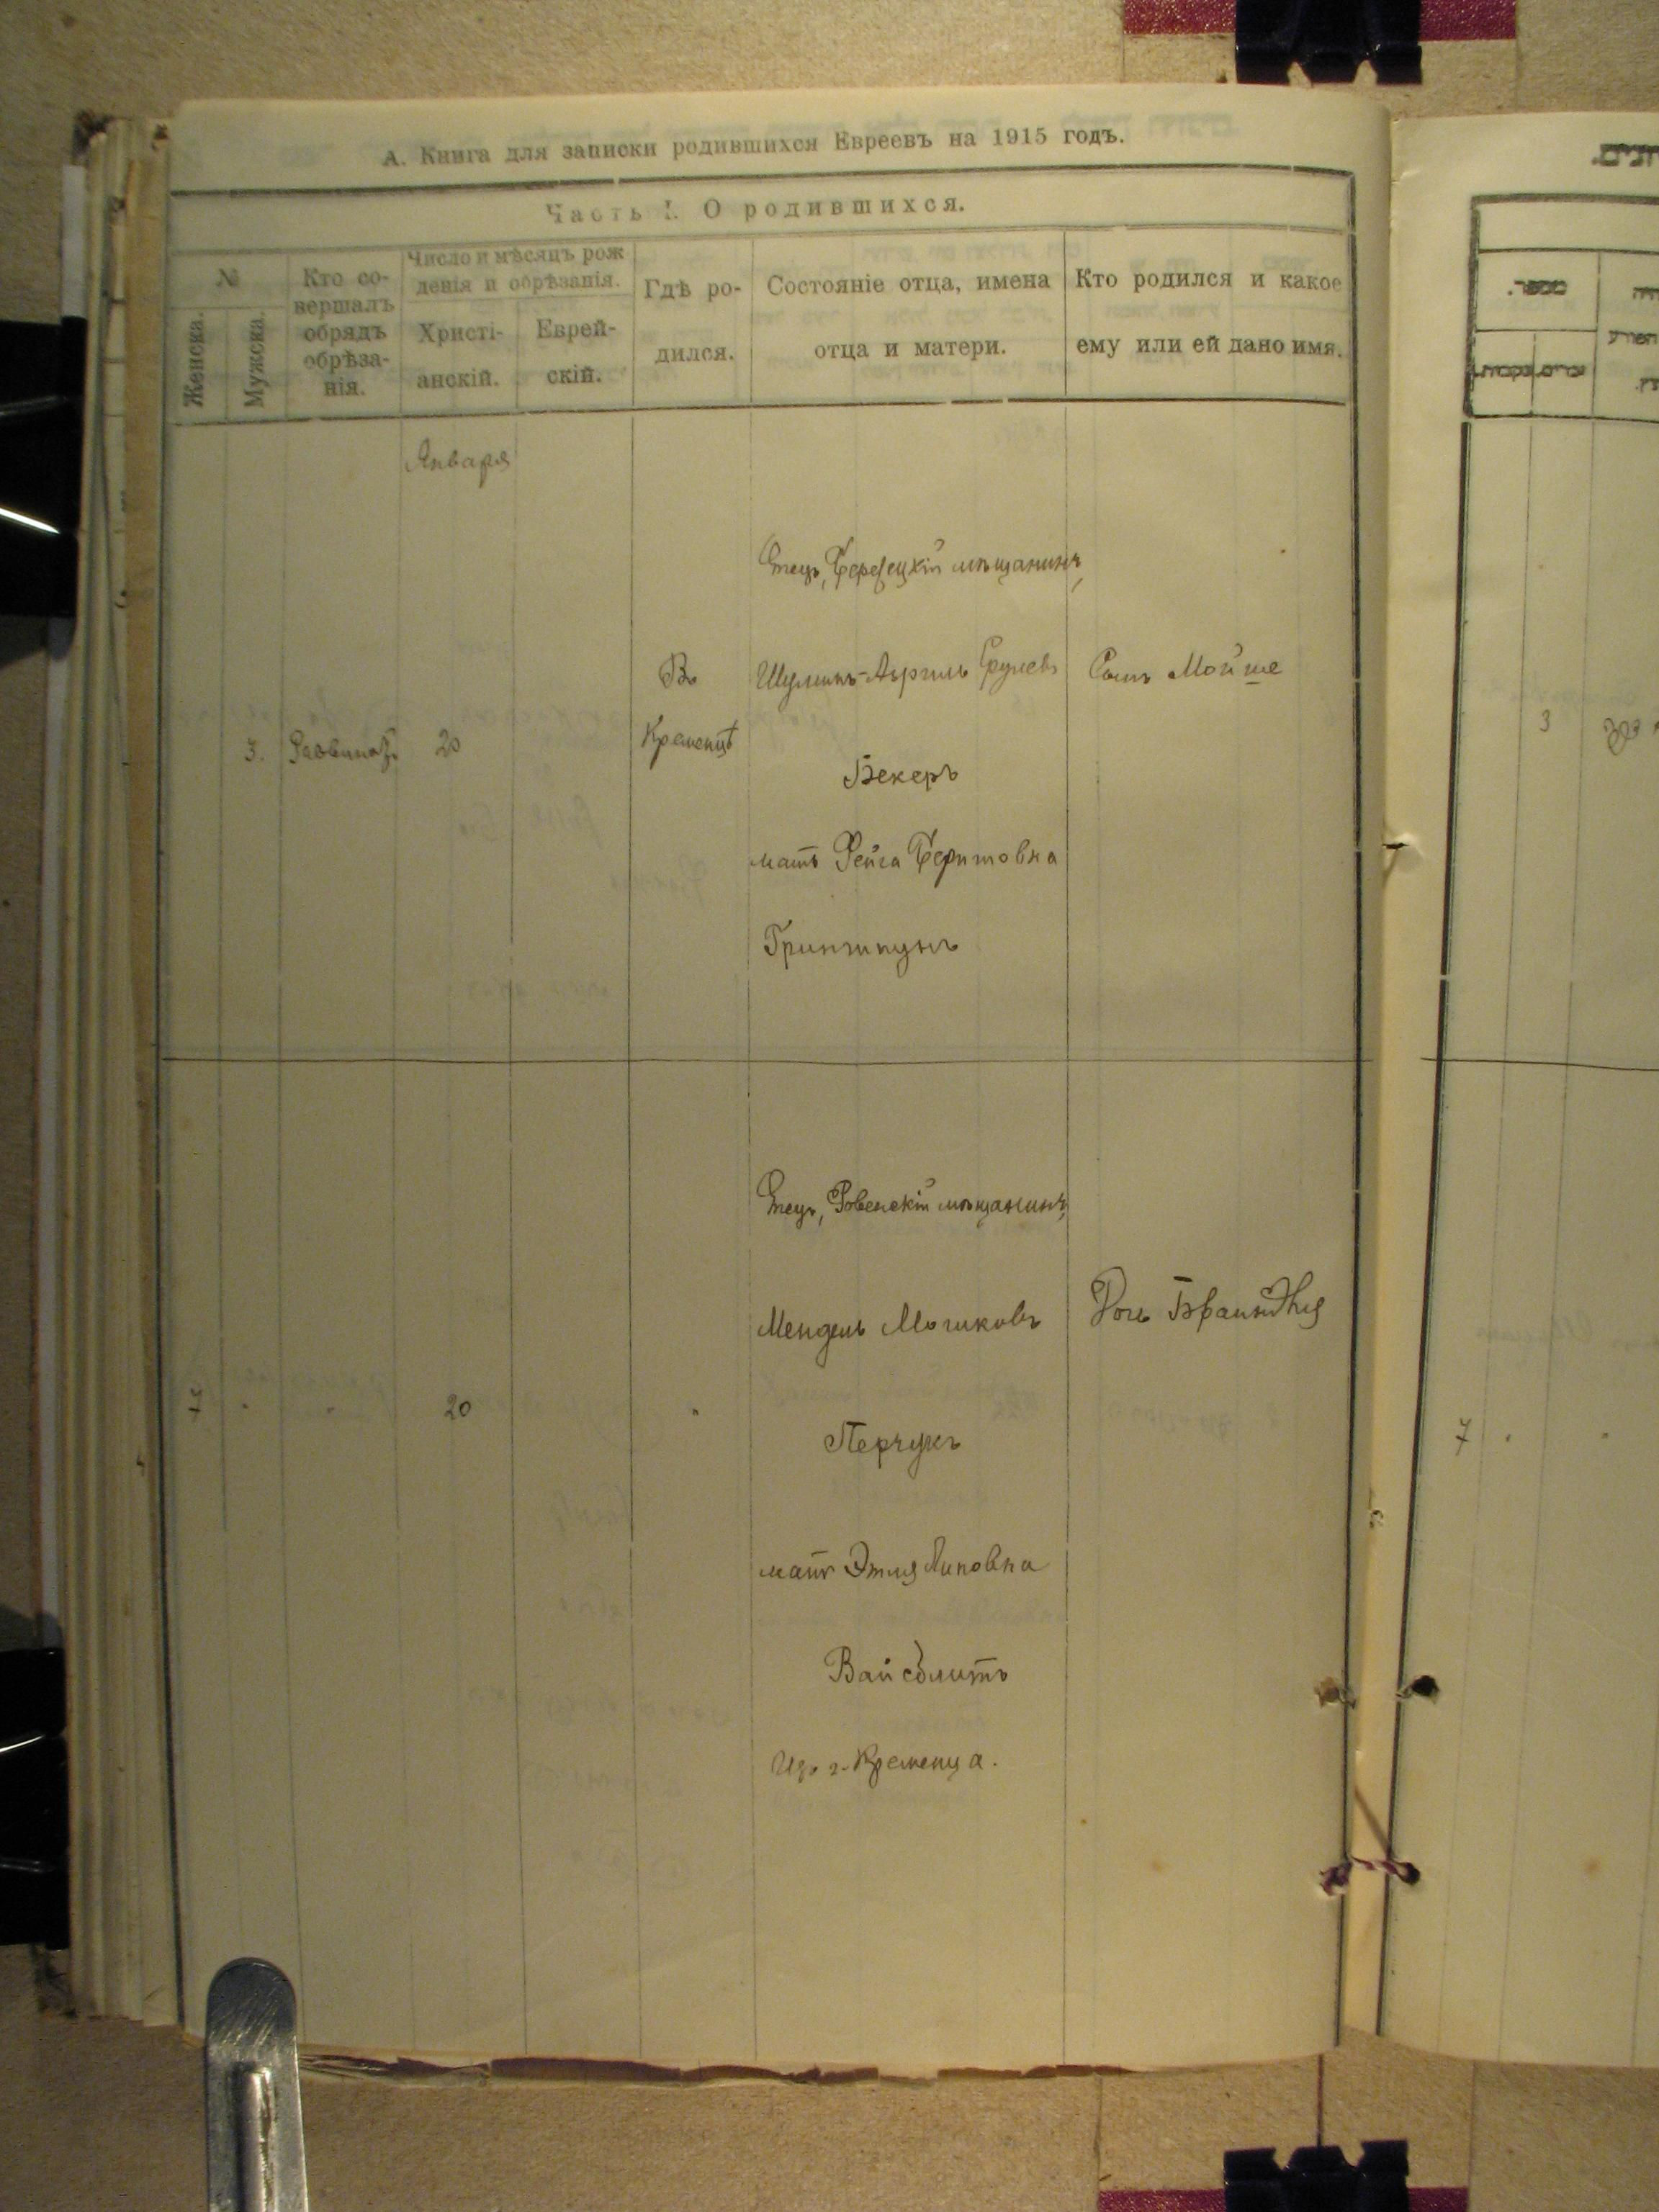 А. Книга для записки родившихся Евреевъ на 1915 годъ.
Часть I. О родившихся.
№
Женска.
Мужска.
Кто со-
вершалъ
обрядъ
обрѣза-
нія.
Число и мѣсяцъ рож
денія и обрѣзанія.
Христі-
анскій.
Еврей-
скій.
Гдѣ ро-
дился.
Состояніе отца, имена
отца и матери.
Кто родился и какое
ему или ей дано имя.
Января
Отецъ, Березецкій мѣщанинъ,
3.
20
Въ
Кременцѣ
Шулимъ- Срулевъ
Бекеръ
мать Фейга Беришовна
Гринштпунъ
Сынъ Мойше
Отецъ, Ровенскій мѣщанинъ,
7
20
"
Мендель Мошковъ
Перчукъ
мать Этля Липовна
Вайсблитъ
Изъ г. Кременца.
Дочь
3
7